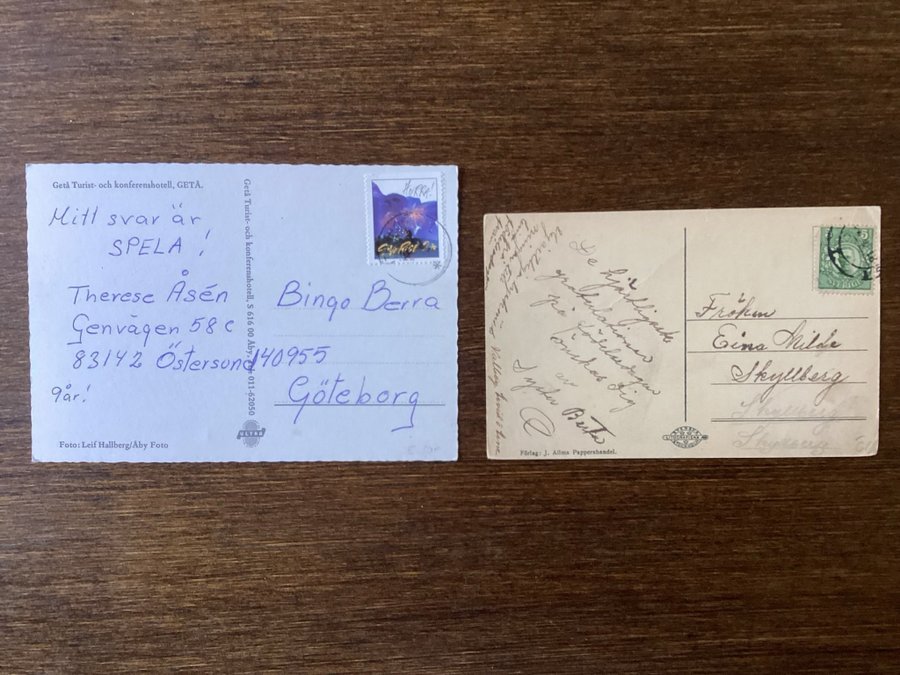 Getå Turist- och konferenshotell, GETÅ.
Mitt svar är
SPELA!
Therese Åsén
Genvägen 58 c
83142 Östersund
9år!
Foto: Leif Hallberg/Åby Foto
Getå Turist- och konferenshotell, S 616 00 Åby. 011-62050
ULTRA
HURRA!
Bingo Berra
140955
Göteborg
De hjärtligaste
gratulationer
på födelsedagen
önskas dig
av
Syster Berta
Förlag: J. Allms Pappershandel.
SVERIGE
Fröken
Eina Milde
Skyllberg
Skyllberg